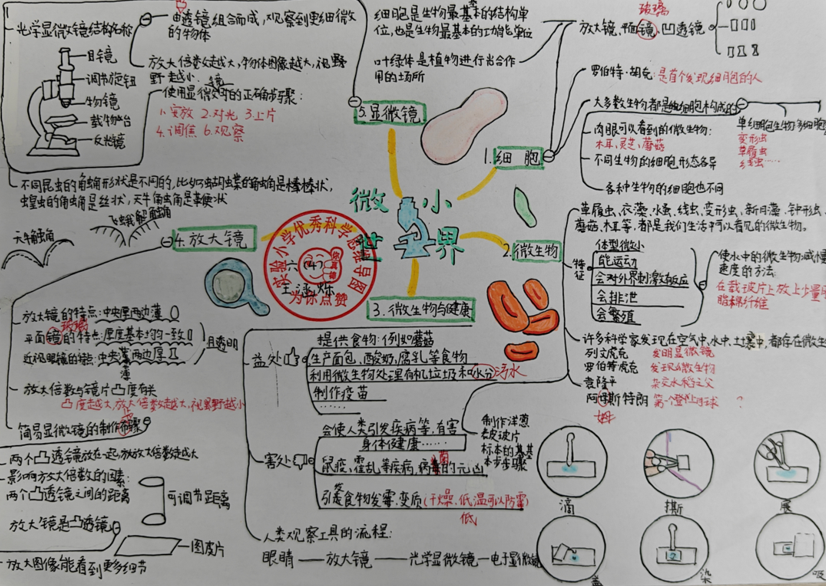 光学显微镜结构名称
目镜
调节旋钮
物镜
载物台
反光镜
由透镜组合而成,观察到更细微
的物体
放大倍数越大,物体图像越大,视野
越小
使用显微镜的正确步骤:
1.安放 2.对光 3.上片
4.调焦 6.观察
5.显微镜
细胞是生物最基本的结构单
位,也是生物最基本的功能单位
叶绿体是植物进行光合作
用的场所
玻璃
放大镜,平面镜,凹透镜
罗伯特·胡克 是首个发现细胞的人
大多数生物都是由细胞构成的
单细胞生物 多细胞
变形虫
草履虫
肉眼可以看到的微生物:
木耳,灵芝,蘑菇
不同生物的细胞形态各异
各种生物的细胞也不同
1.细胞
不同昆虫的触角形状是不同的,比如蝴蝶的触角是棒棒状,
蝗虫的触角是丝状,天牛触角是鞭状
天牛触角
飞蛾触角
4.放大镜
微小
世界
实验小学优秀科学思维导图
为你点赞
2.微生物
草履虫、衣藻、水蚤、线虫、变形虫、新月藻、钟形虫、
蘑菇、木耳等,都是我们生活中可以看见的微生物。
特征
体型微小
能运动
会对外界刺激做反应
会排泄
会繁殖
使水中的微生物减慢
速度的方法:
在载玻片上放上少量
脱脂棉纤维
许多科学家发现在空气中,水中,土壤中,都存在微生
列文虎克 发明显微镜
罗伯特虎克 发现微生物
袁隆平 杂交水稻之父
阿姆斯特朗 第一个登陆月球 ?
姆
3.微生物与健康
放大镜的特点:中央厚四边薄
玻璃
平面镜的特点:厚度基本均一致
近视眼镜的镜:中央薄四边厚
且透明
放大倍数与镜片凸度有关
凸度越大,放大倍数越大,视野越小
简易显微镜的制作步骤
两个凸透镜放在一起,放大倍数越大
影响放大倍数的因素:
两个凸透镜之间的距离
可调节距离
放大镜是凸透镜
图片
放大图像能看到更多细节
益处
提供食物:例如蘑菇
生产面包,酸奶,腐乳等食物
利用微生物处理有机垃圾和污水
制作疫苗
……
害处
会使人类引发疾病等,有害
身体健康……
鼠疫,霍乱等疾病,病菌的元凶
引起食物发霉,变质(干燥,低温可以防霉)
低
人类观察工具的流程:
眼睛——放大镜——光学显微镜—电子显微镜
制作洋葱
表皮玻片
标本的基
本步骤
滴
撕
展
盖
染